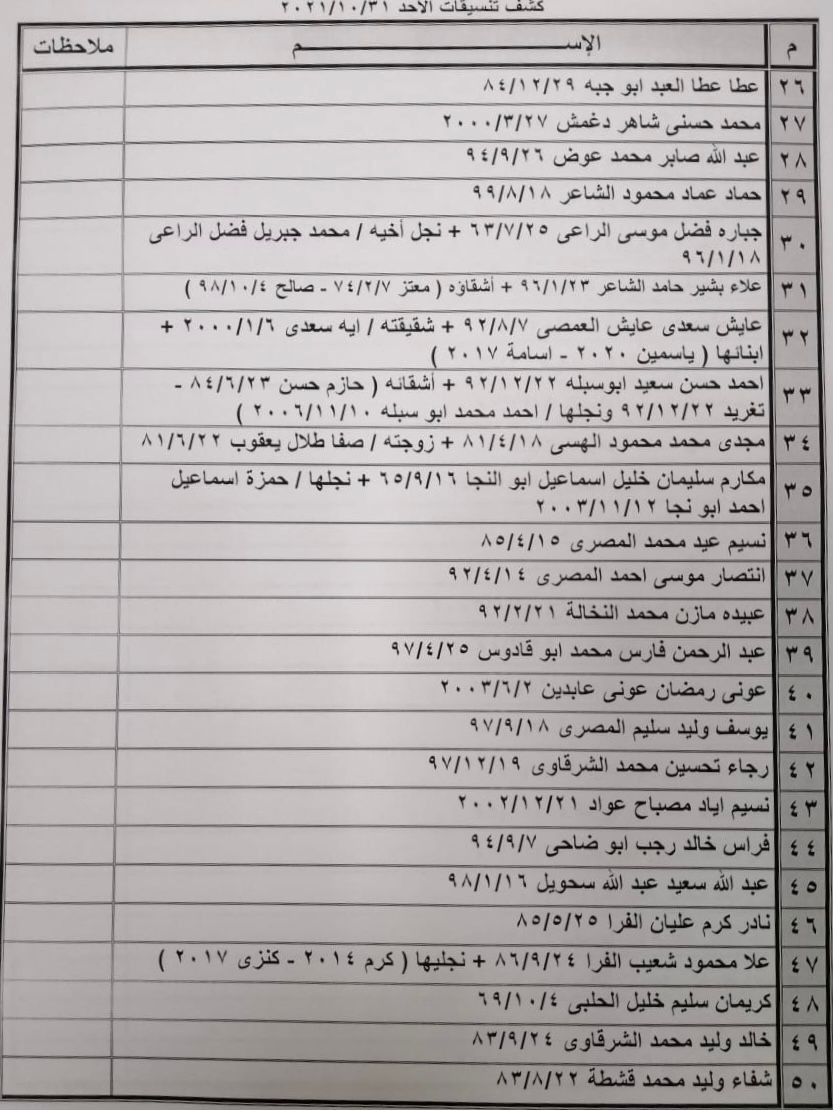 كشف تنسيقات الأحد ٢٠٢١/١٠/٣١
م الإســـــم ملاحظات
٢٦ عطا عطا العبد ابو جبه ٨٤/١٢/٢٩
٢٧ محمد حسنى شاهر دغمش ٢٠٠٠/٣/٢٧
٢٨ عبد الله صابر محمد عوض ٩٤/٩/٢٦
٢٩ حماد عماد محمود الشاعر ٩٩/٨/١٨
٣٠ جباره فضل موسى الراعى ٦٣/٧/٢٥ + نجل أخيه / محمد جبريل فضل الراعى
٩٦/١/١٨
٣١ علاء بشير حامد الشاعر ٩٦/١/٢٣ + أشقاؤه ( معتز ٧٤/٢/٧ - صالح ٩٨/١٠/٤ )
٣٢ عايش سعدى عايش العمصى ٩٢/٨/٧ + شقيقته / ايه سعدى ٢٠٠٠/١/٦ +
ابنائها ( ياسمين ٢٠٢٠ - اسامة ٢٠١٧ )
٣٣ احمد حسن سعيد ابوسبله ٩٢/١٢/٢٢ + أشقائه ( حازم حسن ٨٤/٦/٢٣ -
تغريد ٩٢/١٢/٢٢ ونجلها / احمد محمد ابو سبله ٢٠٠٦/١١/١٠ )
٣٤ مجدى محمد محمود الهسى ٨١/٤/١٨ + زوجته / صفا طلال يعقوب ٨١/٦/٢٢
٣٥ مكارم سليمان خليل اسماعيل ابو النجا ٦٥/٩/١٦ + نجلها / حمزة اسماعيل
احمد ابو نجا ٢٠٠٣/١١/١٢
٣٦ نسيم عيد محمد المصرى ٨٥/٤/١٥
٣٧ انتصار موسى احمد المصرى ٩٢/٤/١٤
٣٨ عبيده مازن محمد النخالة ٩٢/٢/٢١
٣٩ عبد الرحمن فارس محمد ابو قادوس ٩٧/٤/٢٥
٤٠ عونى رمضان عونى عابدين ٢٠٠٣/٦/٢
٤١ يوسف وليد سليم المصرى ٩٧/٩/١٨
٤٢ رجاء تحسين محمد الشرقاوى ٩٧/١٢/١٩
٤٣ نسيم اياد مصباح عواد ٢٠٠٢/١٢/٢١
٤٤ فراس خالد رجب ابو ضاحى ٩٤/٩/٧
٤٥ عبد الله سعيد عبد الله سحويل ٩٨/١/١٦
٤٦ نادر كرم عليان الفرا ٨٥/٥/٢٥
٤٧ علا محمود شعيب الفرا ٨٦/٩/٢٤ + نجليها ( كرم ٢٠١٤ - كنزى ٢٠١٧ )
٤٨ كريمان سليم خليل الحلبى ٦٩/١٠/٤
٤٩ خالد وليد محمد الشرقاوى ٨٣/٩/٢٤
٥٠ شفاء وليد محمد قشطة ٨٣/٨/٢٢